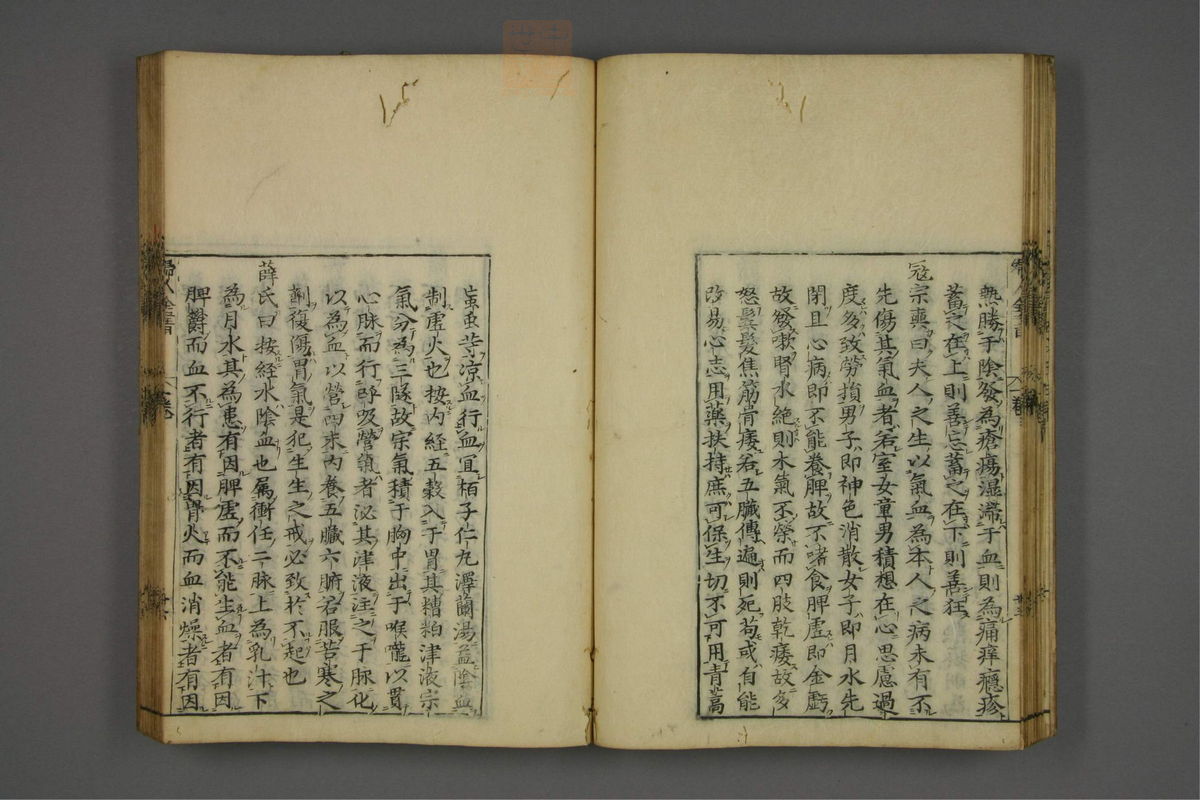 熱勝于陰發為瘡瘍濕滯于血則為痛痒癮疹
蓄之在上則善忘蓄之在下則善狂
冦宗奭曰夫人之生以氣血為本人之病未有不
先傷其氣血者若室女童男積想在心思慮過
度多致勞損男子即神色消散女子即月水先
閉且心病即不能養脾故不嗜食脾虛即金虧
故發嗽腎水絕則木氣不榮而四肢乾痿故多
怒鬢髮焦筋骨痿若五臟傳遍則死苟或自能
改易心志用藥扶持庶可保生切不可用青蒿
䖟虫等凉血行血宜栢子仁丸澤蘭湯益陰血
制虛火也按内經五穀入于胃其糟粕津液宗
氣分為三隧故宗氣積于胸中出于喉嚨以貫
心脉而行呼吸營氣者泌其津液注之于脉化
以為血以營四末内養五臟六腑若服苦寒之
劑復傷胃氣是犯生生之戒必致於不起也
薛氏曰按經水陰血也属衝任二脉上為乳汁下
為月水其為患有因脾虛而不能生血者有因
脾鬱而血不行者有因胃火而血消燥者有因